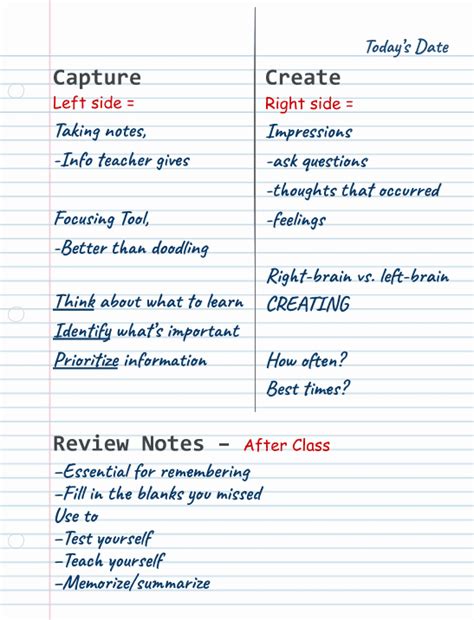 Today's Date
Capture
Left side =
Taking notes,
-Info teacher gives
Focusing Tool,
-Better than doodling
Think about what to learn
Identify what's important
Prioritize information
Create
Right side =
Impressions
-ask questions
-thoughts that occurred
-feelings
Right-brain vs. left-brain
CREATING
How often?
Best times?
Review Notes – After Class
–Essential for remembering
–Fill in the blanks you missed
Use to
–Test yourself
–Teach yourself
–Memorize/summarize